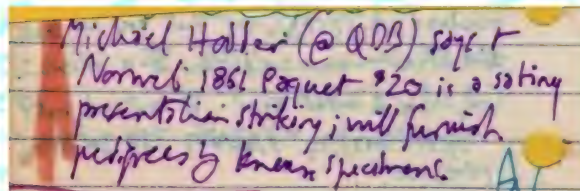 Michael Hodder (@ QDB) says
Norweb 1861 Paquet $20 is a satiny
presentation striking; will furnish
pedigrees of known specimens.